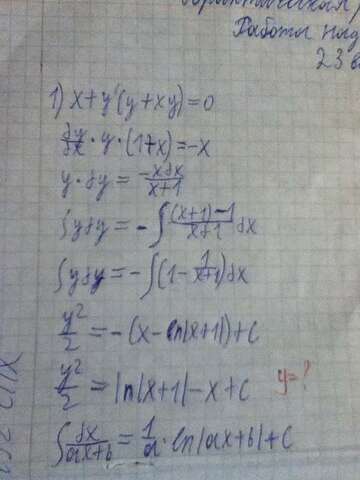 Работа над
23
1) x+y'(y+xy)=0
dy/dx · y · (1+x)=-x
y · dy = -xdx/x+1
∫ydy = -∫(x+1)-1/x+1 dx
∫ydy = -∫(1- 1/x+1)dx
y²/2 = -(x-ln|x+1|)+c
y²/2 = ln|x+1|-x+c y=?
∫dx/ax+b = 1/a · ln|ax+b|+c